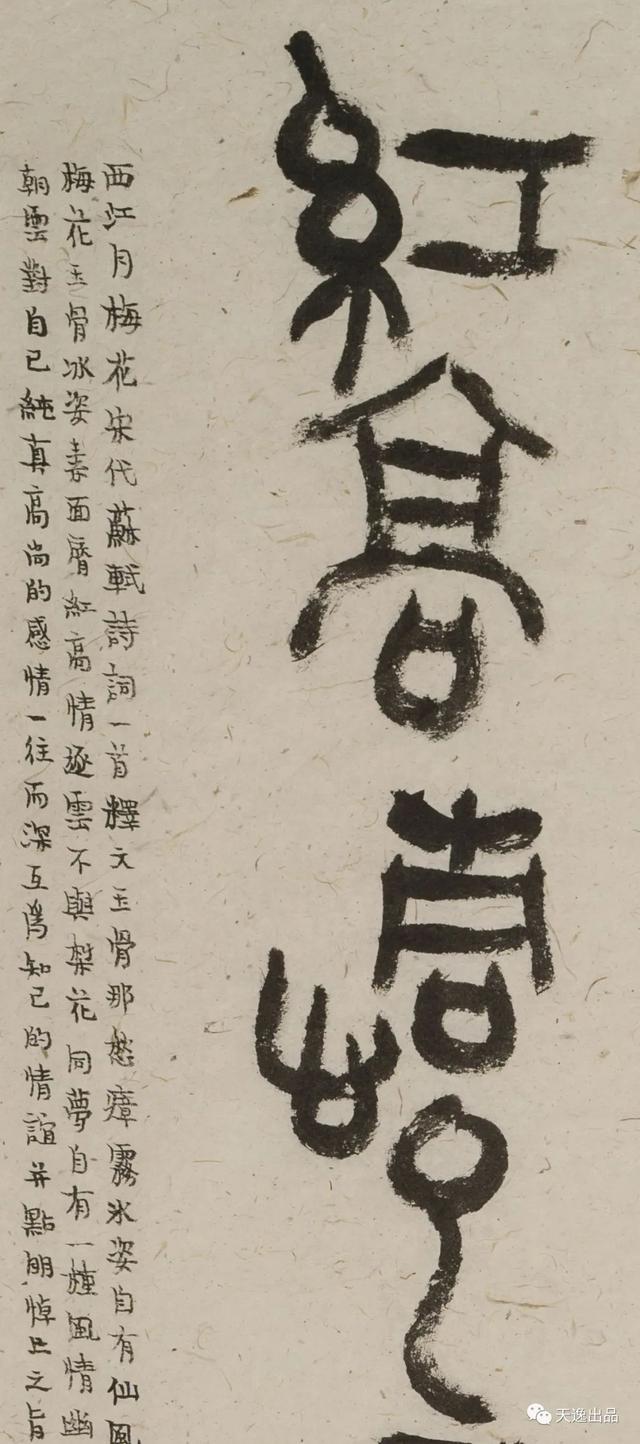 紅高情已
西江月梅花宋代蘇軾詩詞一首釋文玉骨那愁瘴霧氷姿自有仙風
梅花玉骨冰姿素面脣紅高情逐雲不與梨花同夢自有一種風情幽
朝雲對自己純真高尚的感情一往而深互爲知己的情誼并點明悼亡之旨
天逸出品